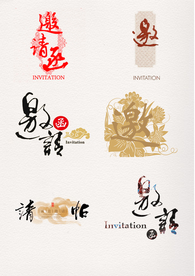 邀
请函
INVITATION
邀
INVITATION
邀請
函
Invitation
邀
請帖
邀請
invitation
函